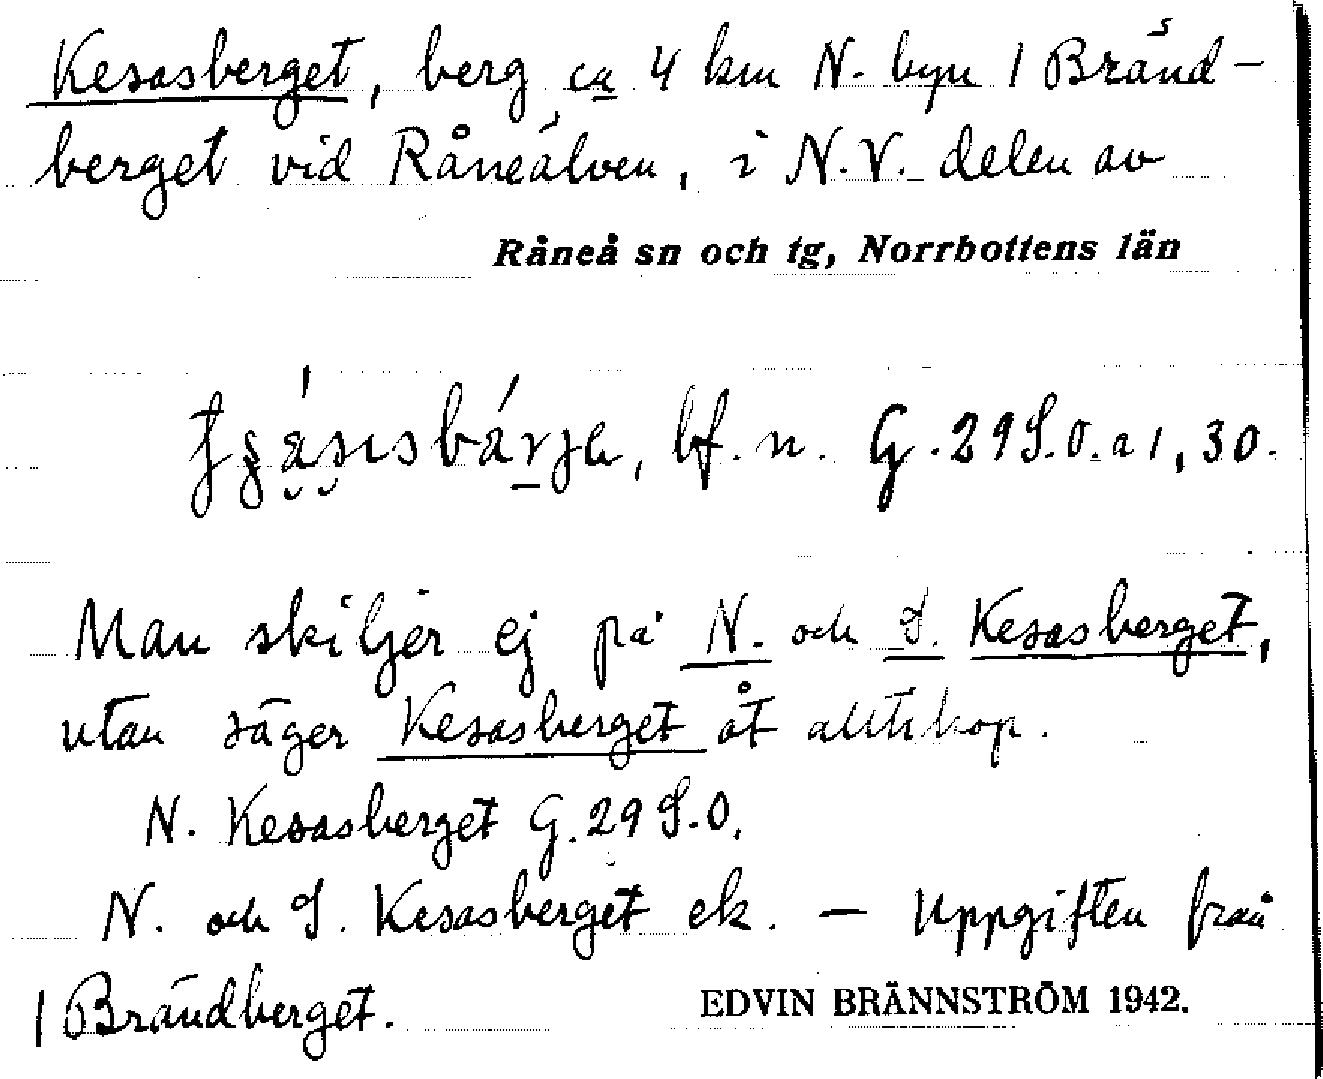 Kesasberget, berg ca 4 km N. byn 1 Bränd-
berget vid Råneälven, i N.V. delen av
Råneå sn och tg, Norrbottens län
bf. n. G. 29 S.O. a 1, 30.
Man skiljer ej på N. och S. Kesasberget,
utan säger Kesasberget åt alltihop.
N. Kesasberget G. 29 S.O.
N. och S. Kesasberget ek. — Uppgiften från
1 Brändberget.
EDVIN BRÄNNSTRÖM 1942.